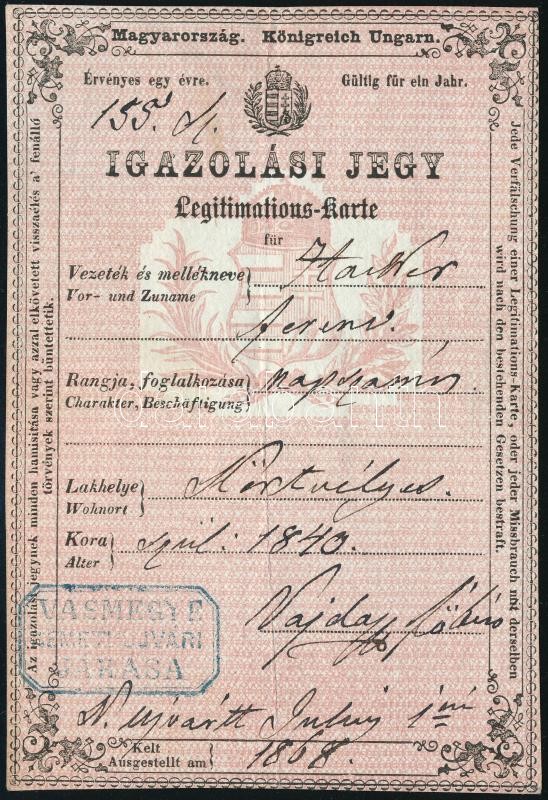 Magyarország. Königreich Ungarn.
Érvényes egy évre. Gültig für ein Jahr.
IGAZOLÁSI JEGY
Legitimations-Karte
für
Vezeték és mellékneve
Vor- und Zuname
Ferenc.
Rangja, foglalkozása napszámos
Charakter, Beschäftigung
Lakhelye Körtvélyes.
Wohnort
Kora szül: 1840.
Alter
Vajda főbíró
VASMEGYE
NÉMETHUJVÁRI
JÁRÁSA
N. Ujvártt Julius 1
Kelt
Ausgestellt am 1868.
Az igazolási jegynek minden hamisitása vagy azzal elkövetett visszaélés a' fenálló
törvények szerint büntettetik.
Jede Verfälschung einer Legitimations-Karte, oder jeder Missbrauch mit derselben
wird nach den bestehenden Gesetzen bestraft.